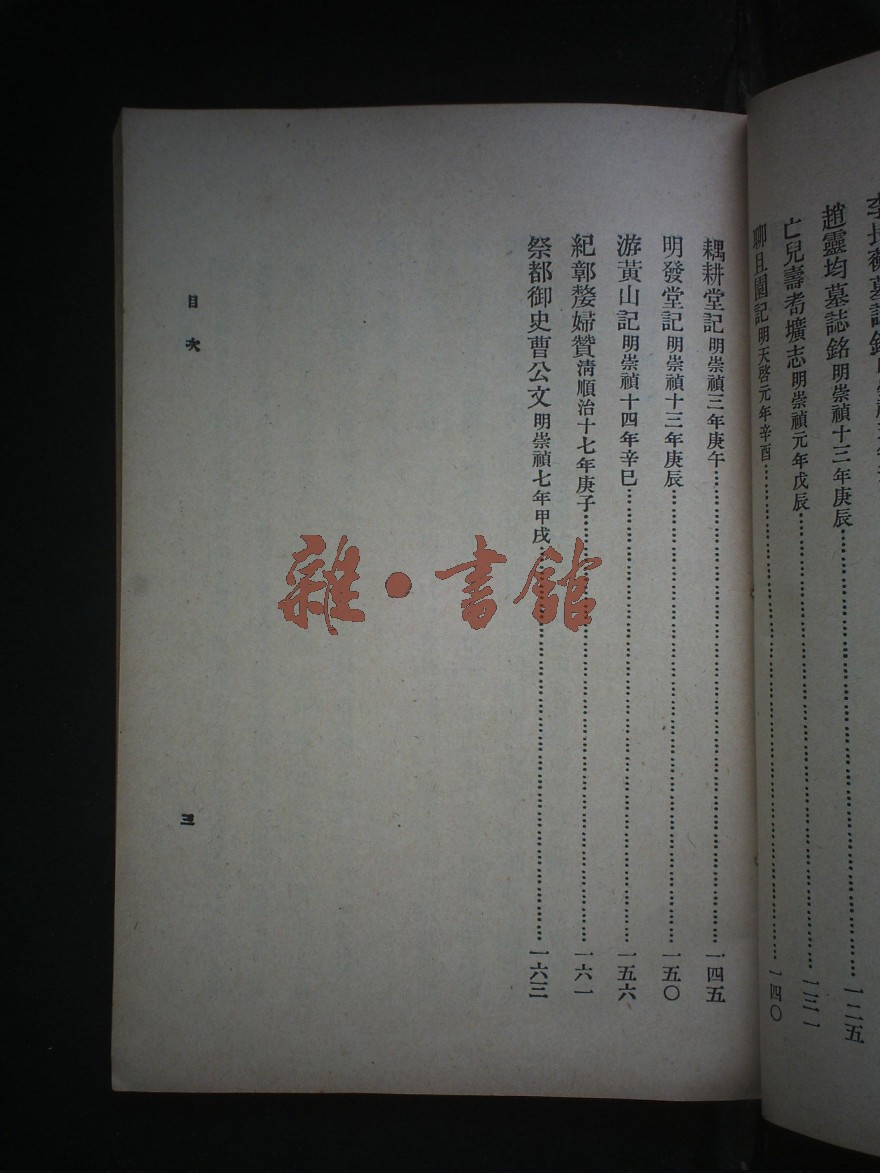 趙靈均墓誌銘 明崇禎十三年庚辰……一二五
亡兒壽耇壙志 明崇禎元年戊辰……一三一
聊且園記 明天啓元年辛酉……一四〇
耦耕堂記 明崇禎三年庚午……一四五
明發堂記 明崇禎十三年庚辰……一五〇
游黃山記 明崇禎十四年辛巳……一五六
紀鄣嫠婦贊 清順治十七年庚子……一六一
祭都御史曹公文 明崇禎七年甲戌……一六三
目次
三
雜·書館